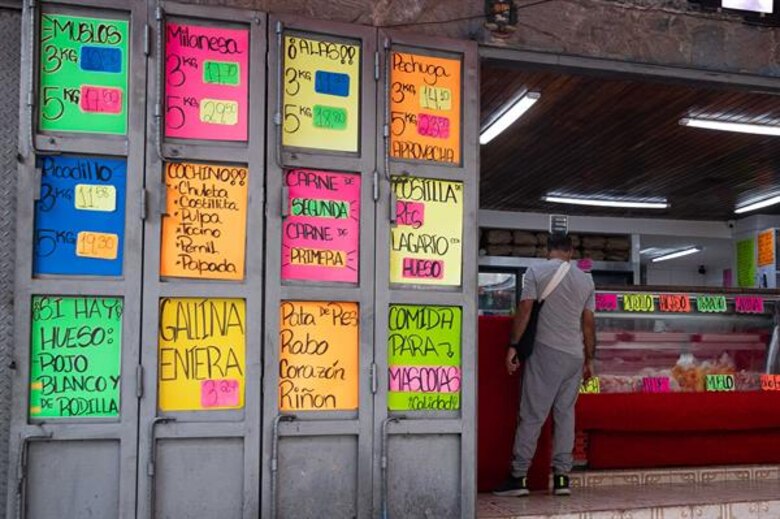 ¡MUSLOS
3KG
5KG 17.50
Milanesa
3KG
5KG
¡ALAS!!
3KG
5KG 18.80
Pechuga
3KG 14.50
5KG
APROVECHA
Picadillo
3KG 11.58
5KG 19.30
COCHINO!!
• Chuleta
• Costillita
• Pulpa
• Tocino
• Pernil
• Papada
CARNE DE
SEGUNDA
CARNE DE
PRIMERA
COSTILLA DE
RES
LAGARTO CON
HUESO
¡SI HAY!
HUESO:
ROJO
BLANCO Y
DE RODILLA
GALLINA
ENTERA
Pata DE Res
Rabo
Corazón
Riñon
COMIDA
PARA
MASCOTAS
¡Calidad!
MOLIDO